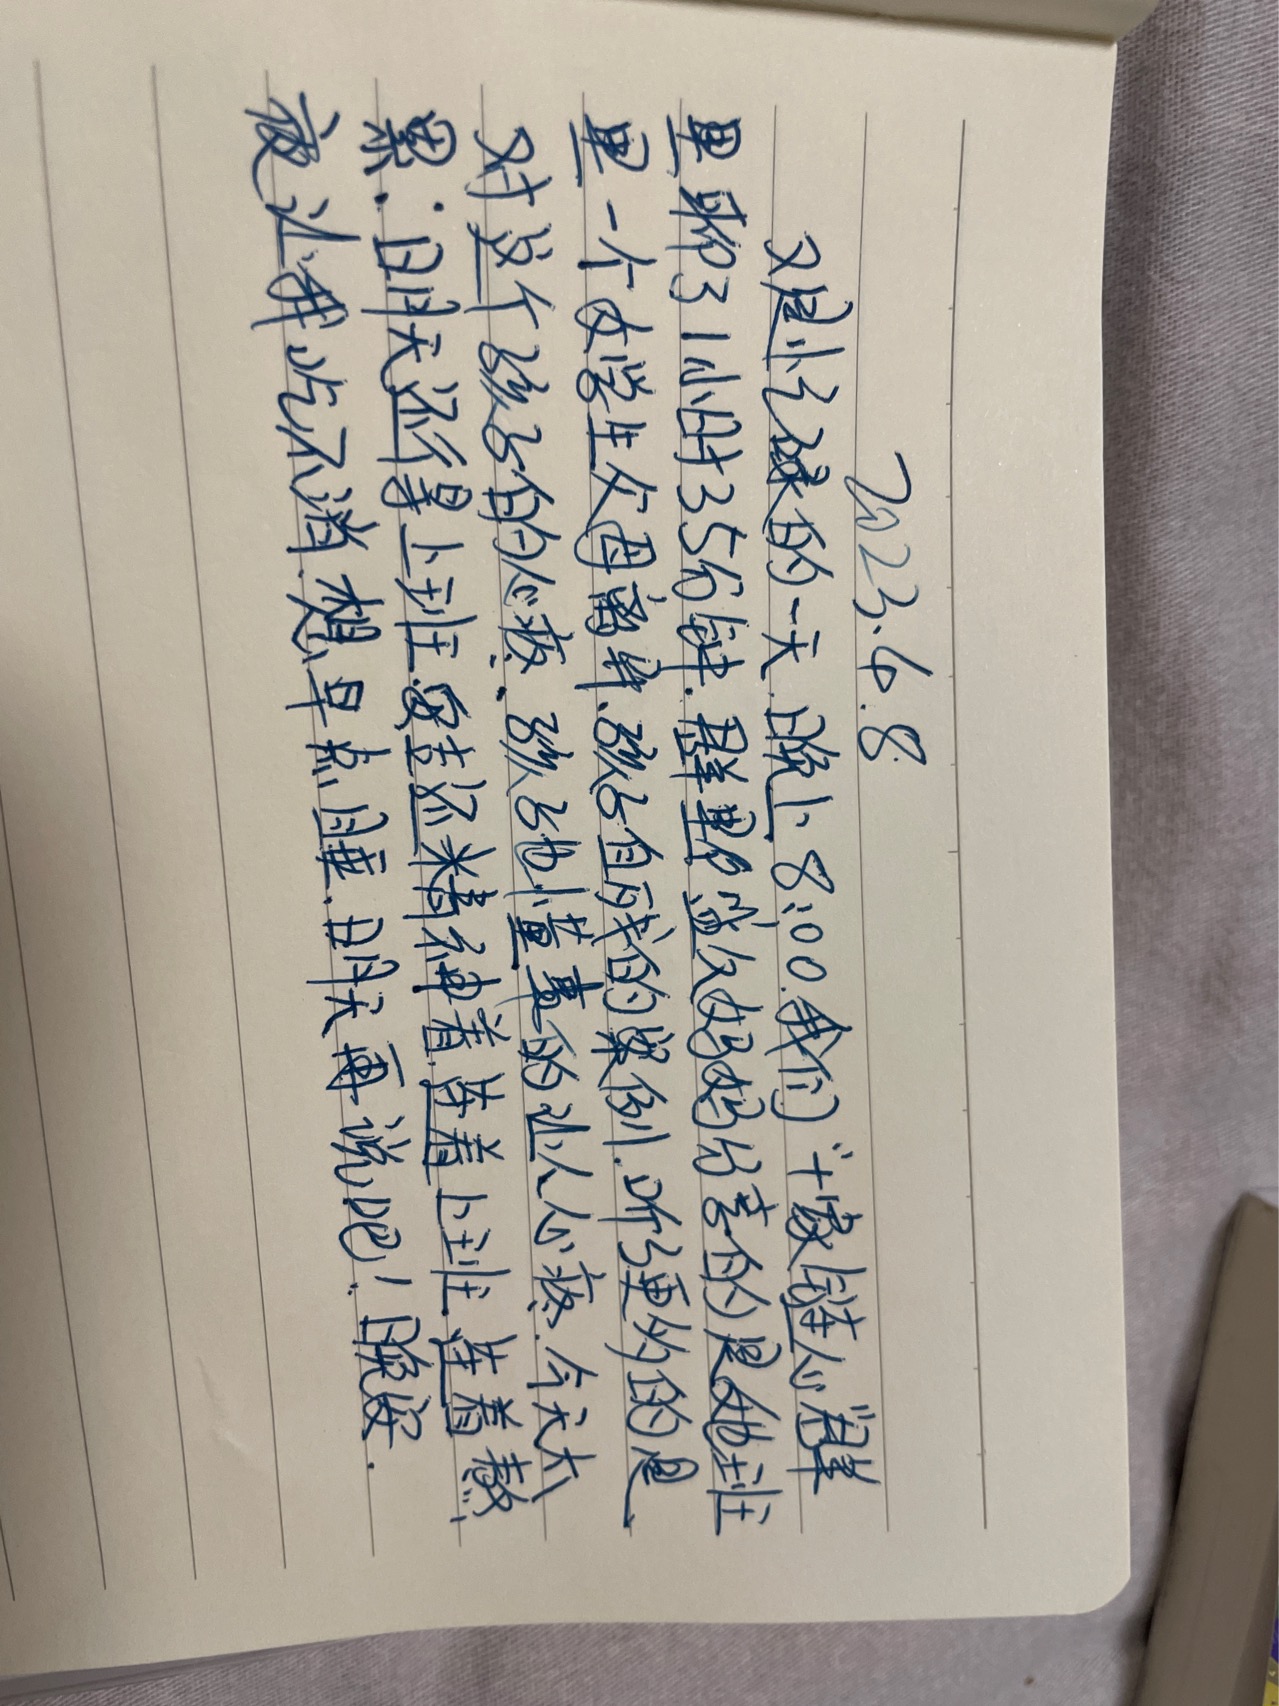 2023.6.8
又是忙碌的一天.晚上8:00.我们“十家链心”群
里聊了1小时35分钟.群里的盛久妈妈分享的是她班
里一个女学生父母离异、孩子自残的案例.听了更多的是
对这个孩子的心疼.孩子她懂事的让人心疼.今天太
累.明天还得上班.爱吉还精神着.连着上班连着熬
夜让我吃不消.想早点睡.明天再说吧!晚安.